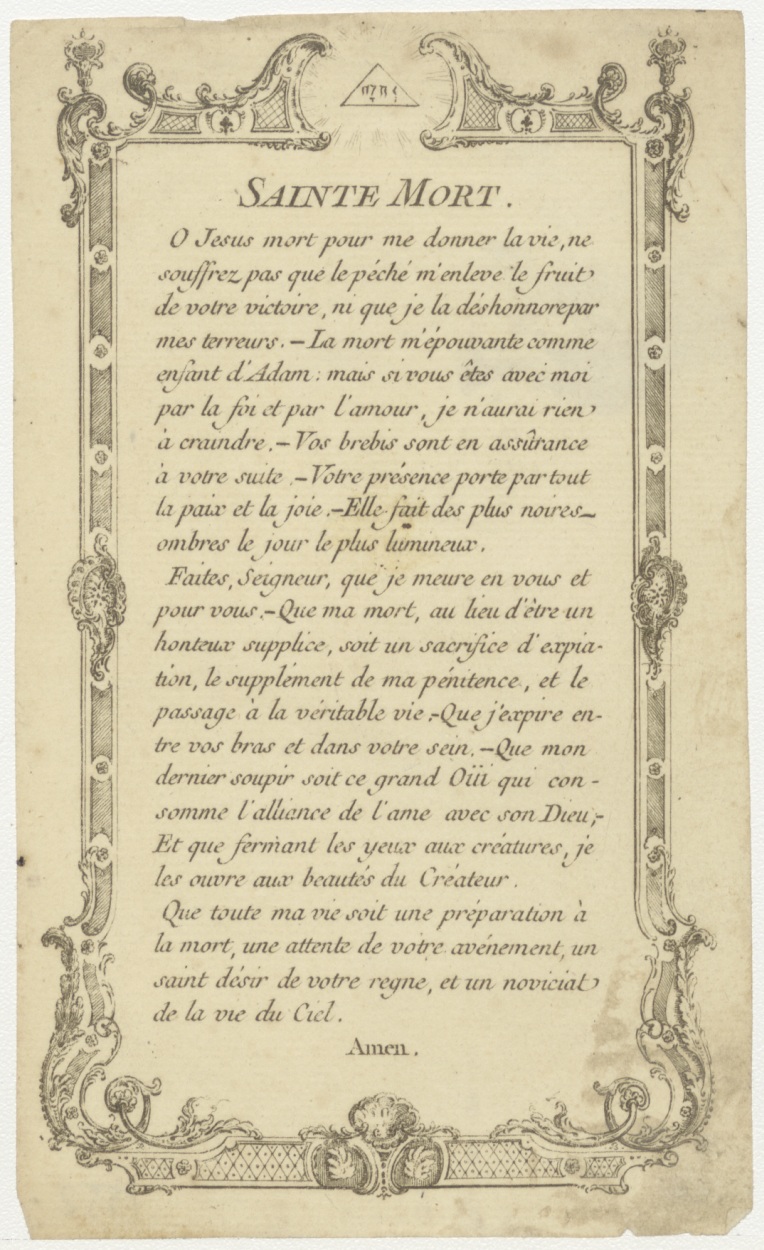 SAINTE MORT.
O Jesus mort pour me donner la vie, ne
souffrez pas que le péché m'enleve le fruit
de votre victoire, ni que je la déshonnore par
mes terreurs. – La mort m'épouvante comme
enfant d'Adam : mais si vous êtes avec moi
par la foi et par l'amour, je n'aurai rien
à craindre. – Vos brebis sont en assûrance
à votre suite. – Votre présence porte par tout
la paix et la joie. – Elle fait des plus noires
ombres le jour le plus lumineux.
Faites, Seigneur, que je meure en vous et
pour vous. – Que ma mort, au lieu d'être un
honteux supplice, soit un sacrifice d'expia-
tion, le supplément de ma pénitence, et le
passage à la véritable vie. – Que j'expire en-
tre vos bras et dans votre sein. – Que mon
dernier soupir soit ce grand Oüi qui con-
somme l'alliance de l'ame avec son Dieu, –
Et que fermant les yeux aux créatures, je
les ouvre aux beautés du Créateur.
Que toute ma vie soit une préparation à
la mort, une attente de votre avénement, un
saint désir de votre regne, et un noviciat
de la vie du Ciel.
Amen.